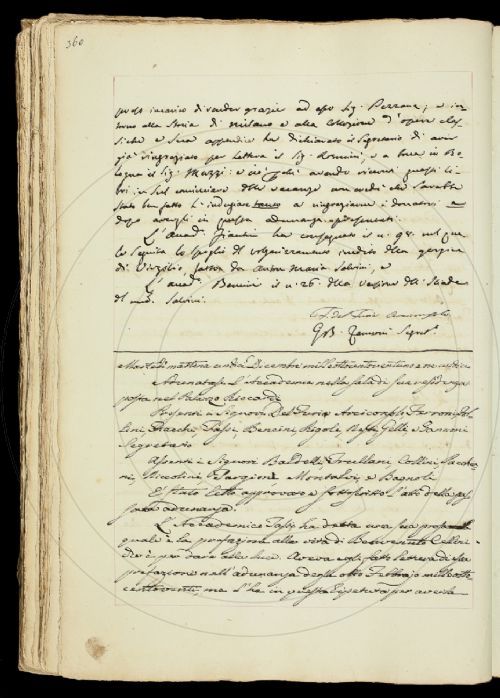 360
incarico di render grazie ad esso Sig. Pezzana; e in-
torno alla Storia di Milano e alla Collezione d'opere clas-
siche e sua appendice ha dichiarato il Segretario di aver
già ringraziato per lettera il Sig. e a voce in Bo-
logna il Sig. Mazzi: e ciò avendo ricevuti questi li-
bri in sul cominciare delle vacanze non credé che sarebbe
stato ben fatto l'indugiar tanto a ringraziarne i donatori e
dopo averli in questa adunanza presentati.
L'Accad. Fiacchi ha consegnato il n. 98. nel que
le seguita lo spoglio del volgarizzamento inedito della
di Virgilio, fatto da Anton Maria Salvini, e
L'Accad. Bencini il n. 26. della versione dell'Iliade
del med. Salvini.
F. del Furia Arciconsolo
G.B. Zannoni Segret.
Martedì mattina undici Decembre mille ottocento ventuno
Adunatasi l'Accademia nella sala di sua residenza
posta nel Palazzo Riccardi
Presenti i Signori Del Furia Arciconsolo, Ferroni, Pol-
lini, Fiacchi, Tassi, Bencini, Rigoli, Gelli, e Zannoni
Segretario
Assenti i Signori Baldelli, Fossi, Collini, Sarchia-
ni, Niccolini, Montalvi, e Bagnoli
È stato letto approvato e sottoscritto l'atto della pas-
sata adunanza.
L'Accademico Tassi ha detta una sua prosa la
quale è la prefazione alla vita di Benvenuto Cellini
che è per dare alla luce. Aveva egli fatto lettura di sua
prefazione nell'adunanza degli otto Febbrajo mille otto
centoventi, ma l'ha in questa ripetuta per averla